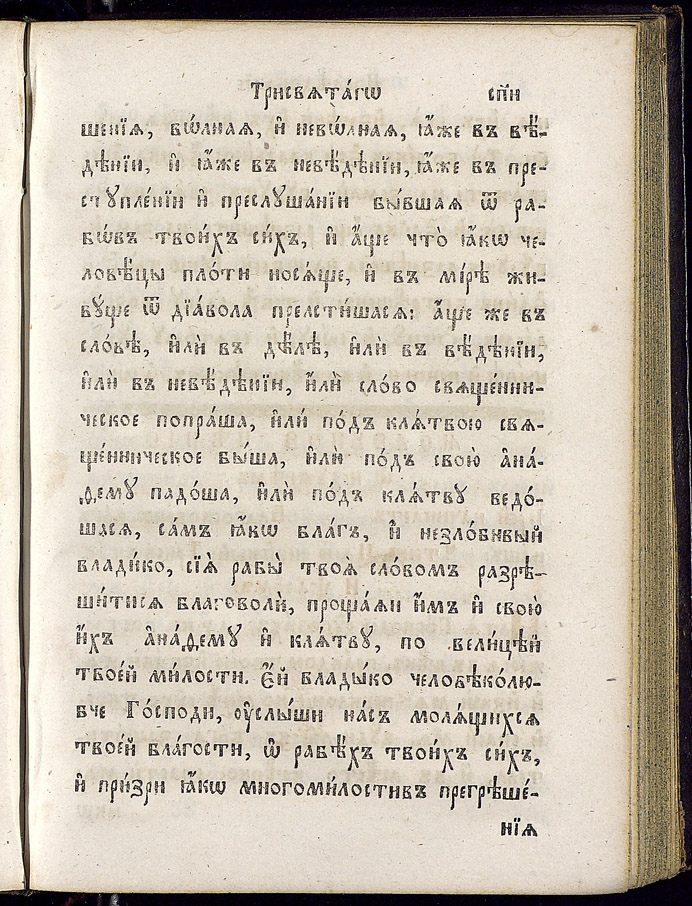 Трисвѧта́гѡ сп҃и
шенїѧ, вѡ́лнаѧ, и҆ невѡ́лнаѧ, ꙗ҆́же въ вѣ́-
дѣнїи, и҆ ꙗ҆́же въ невѣ́дѣнїи, ꙗ҆́же въ пре-
стꙋпле́нїи и҆ преслꙋша́нїи бы́вшаѧ ѿ ра-
бѡ́въ твои́хъ си́хъ, и҆ а҆́ще что̀ ꙗ҆́кѡ че-
ловѣ́цы пло́ти носѧ́ще, и҆ въ мі́рѣ жи-
вꙋ́ще ѿ дїа́вола прелсти́шасѧ: а҆́ще же въ
сло́вѣ, и҆лѝ въ дѣ́лѣ, и҆лѝ въ вѣ́дѣнїи,
и҆лѝ въ невѣ́дѣнїи, и҆лѝ сло́во свѧще́нни-
ческое попра́ша, и҆лѝ по́дъ клѧ́твою свѧ-
ще́нническое бы́ша, и҆лѝ по́дъ свою̀ а҆на́-
ѳемꙋ падо́ша, и҆лѝ по́дъ клѧ́твꙋ ведо́-
шасѧ, са́мъ ꙗ҆́кѡ бла́гъ, и҆ незло́бивый
влады́ко, сїѧ̀ рабы̀ твоѧ̀ сло́вомъ разрѣ-
ши́тисѧ благоволѝ, проща́ѧи и҆̀мъ и҆ свою̀
и҆́хъ а҆на́ѳемꙋ и҆ клѧ́твꙋ, по вели́цѣй
твое́й ми́лости. Є҆́й влады́ко человѣко́лю-
бче Го́споди, ᲂу҆слы́ши на́съ молѧ́щихсѧ
твое́й бла́гости, ѡ҆ рабѣ́хъ твои́хъ си́хъ,
и҆ при́зри ꙗ҆́кѡ многоми́лостивъ прегрѣше́-
нїѧ